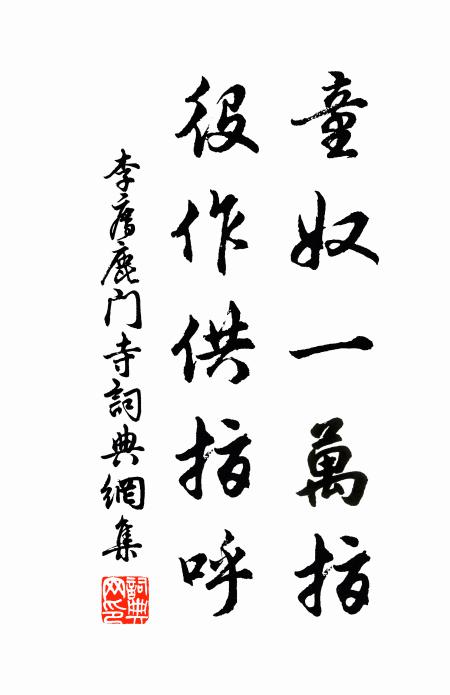 童奴一萬指
役作供指呼
李廌鹿門寺詞典網集
詞典網印